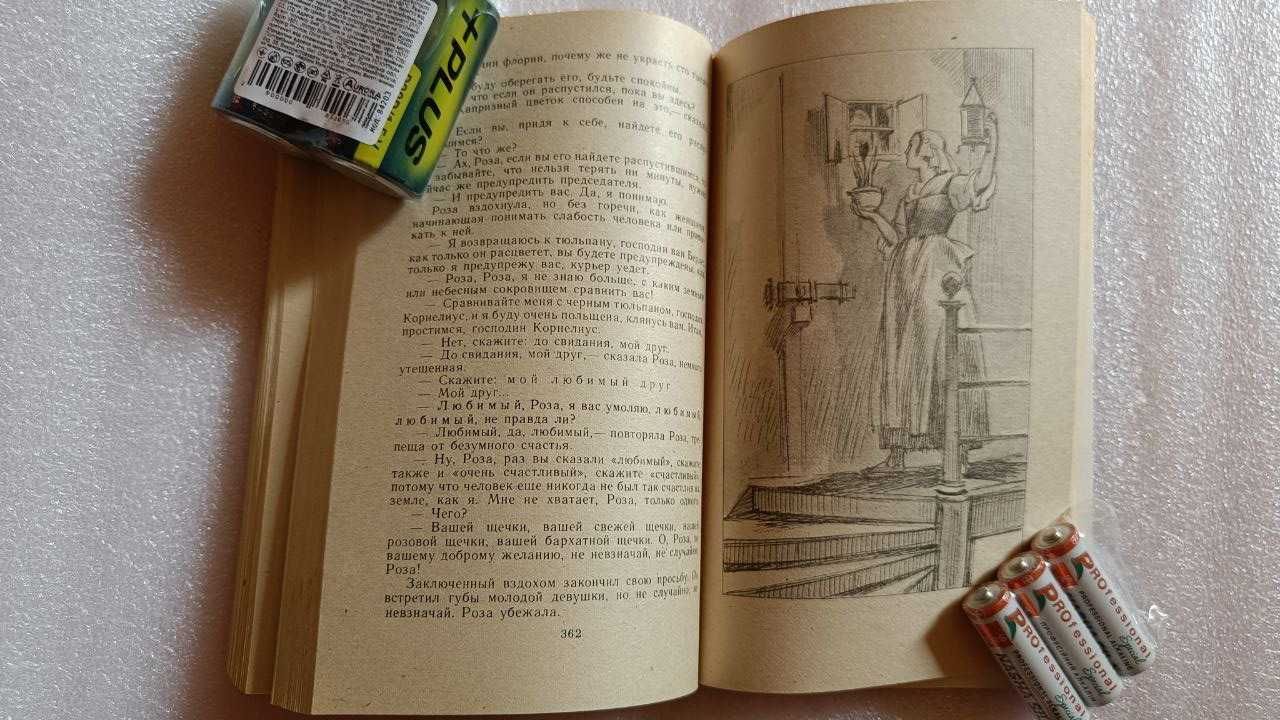 +PLUS
AURORA
ции флорин, почему же не украсть сто тысяч
буду оберегать его, будьте спокойны.
что если он распустился, пока вы здесь?
капризный цветок способен на это,— сказала
Если вы, придя к себе, найдете его распу
шимся?
— То что же?
— Ах, Роза, если вы его найдете распустившимся,
забывайте, что нельзя терять ни минуты, нужно
час же предупредить председателя.
— И предупредить вас. Да, я понимаю.
Роза вздохнула, но без горечи, как женщина,
начинающая понимать слабость человека или привы
кать к ней.
— Я возвращаюсь к тюльпану, господин ван Берле,
как только он расцветет, вы будете предупреждены, как
только я предупрежу вас, курьер уедет.
— Роза, Роза, я не знаю больше, с каким земным
или небесным сокровищем сравнить вас!
— Сравнивайте меня с черным тюльпаном, господин
Корнелиус, и я буду очень польщена, клянусь вам. Итак,
простимся, господин Корнелиус.
— Нет, скажите: до свидания, мой друг.
— До свидания, мой друг,— сказала Роза, немного
утешенная.
— Скажите: мой любимый друг
— Мой друг...
— Любимый, Роза, я вас умоляю, любимый,
любимый, не правда ли?
— Любимый, да, любимый,— повторяла Роза, тре
пеща от безумного счастья.
— Ну, Роза, раз вы сказали «любимый», скажите
также и «очень счастливый», скажите «счастливый»,
потому что человек еще никогда не был так счастлив на
земле, как я. Мне не хватает, Роза, только одного.
— Чего?
— Вашей щечки, вашей свежей щечки, вашей
розовой щечки, вашей бархатной щечки. О, Роза, по
вашему доброму желанию, не невзначай, не случайно,
Роза!
Заключенный вздохом закончил свою просьбу. Он
встретил губы молодой девушки, но не случайно, не
невзначай. Роза убежала.
362
PROfessional
PROFESSIONAL ALKALINE
Special
PROfessional
Special
PROfessional